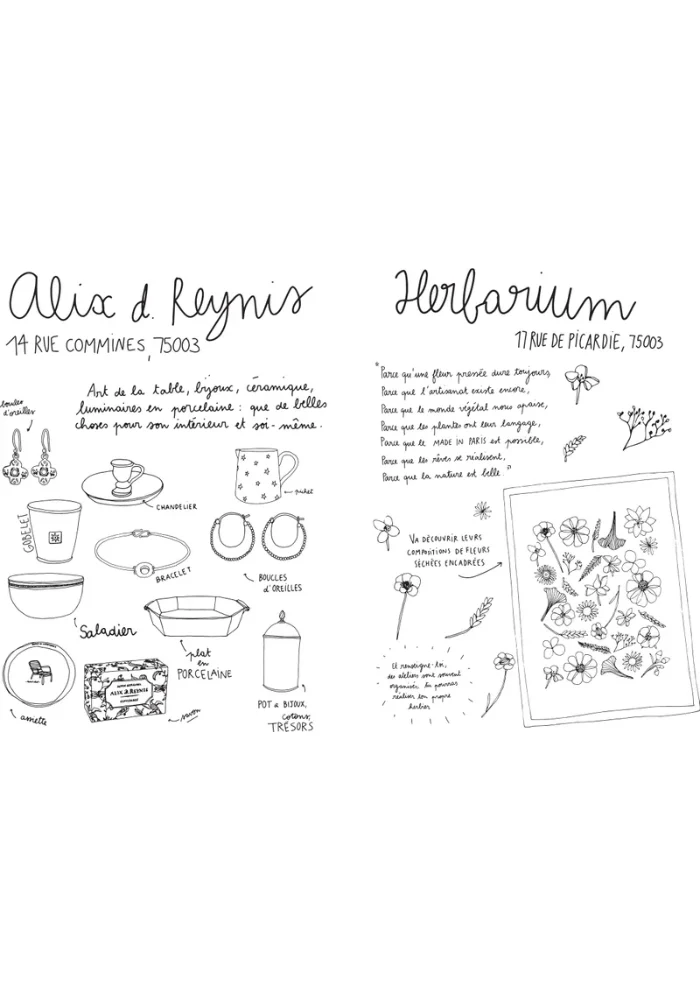 Alix d. Reynis
14 RUE COMMINES, 75003
Art de la table, bijoux, céramique,
luminaires en porcelaine : que de belles
choses pour son intérieur et soi-même.
boucles
d'oreilles
CHANDELIER
pichet
GOBELET
BRACELET
BOUCLES
d'OREILLES
Saladier
plat
en
PORCELAINE
assiette
ALIX D. REYNIS
savon
POT à BIJOUX,
cotons,
TRÉSORS
Herbarium
17 RUE DE PICARDIE, 75003
"Parce qu'une fleur pressée dure toujours,
Parce que l'artisanat existe encore,
Parce que le monde végétal nous apaise,
Parce que les plantes ont leur langage,
Parce que le MADE IN PARIS est possible,
Parce que les rêves se réalisent,
Parce que la nature est belle."
VA DÉCOUVRIR LEURS
COMPOSITIONS DE FLEURS
SÉCHÉES ENCADRÉES
Et renseigne-toi,
des ateliers sont souvent
organisés. Tu pourras
réaliser ton propre
herbier.